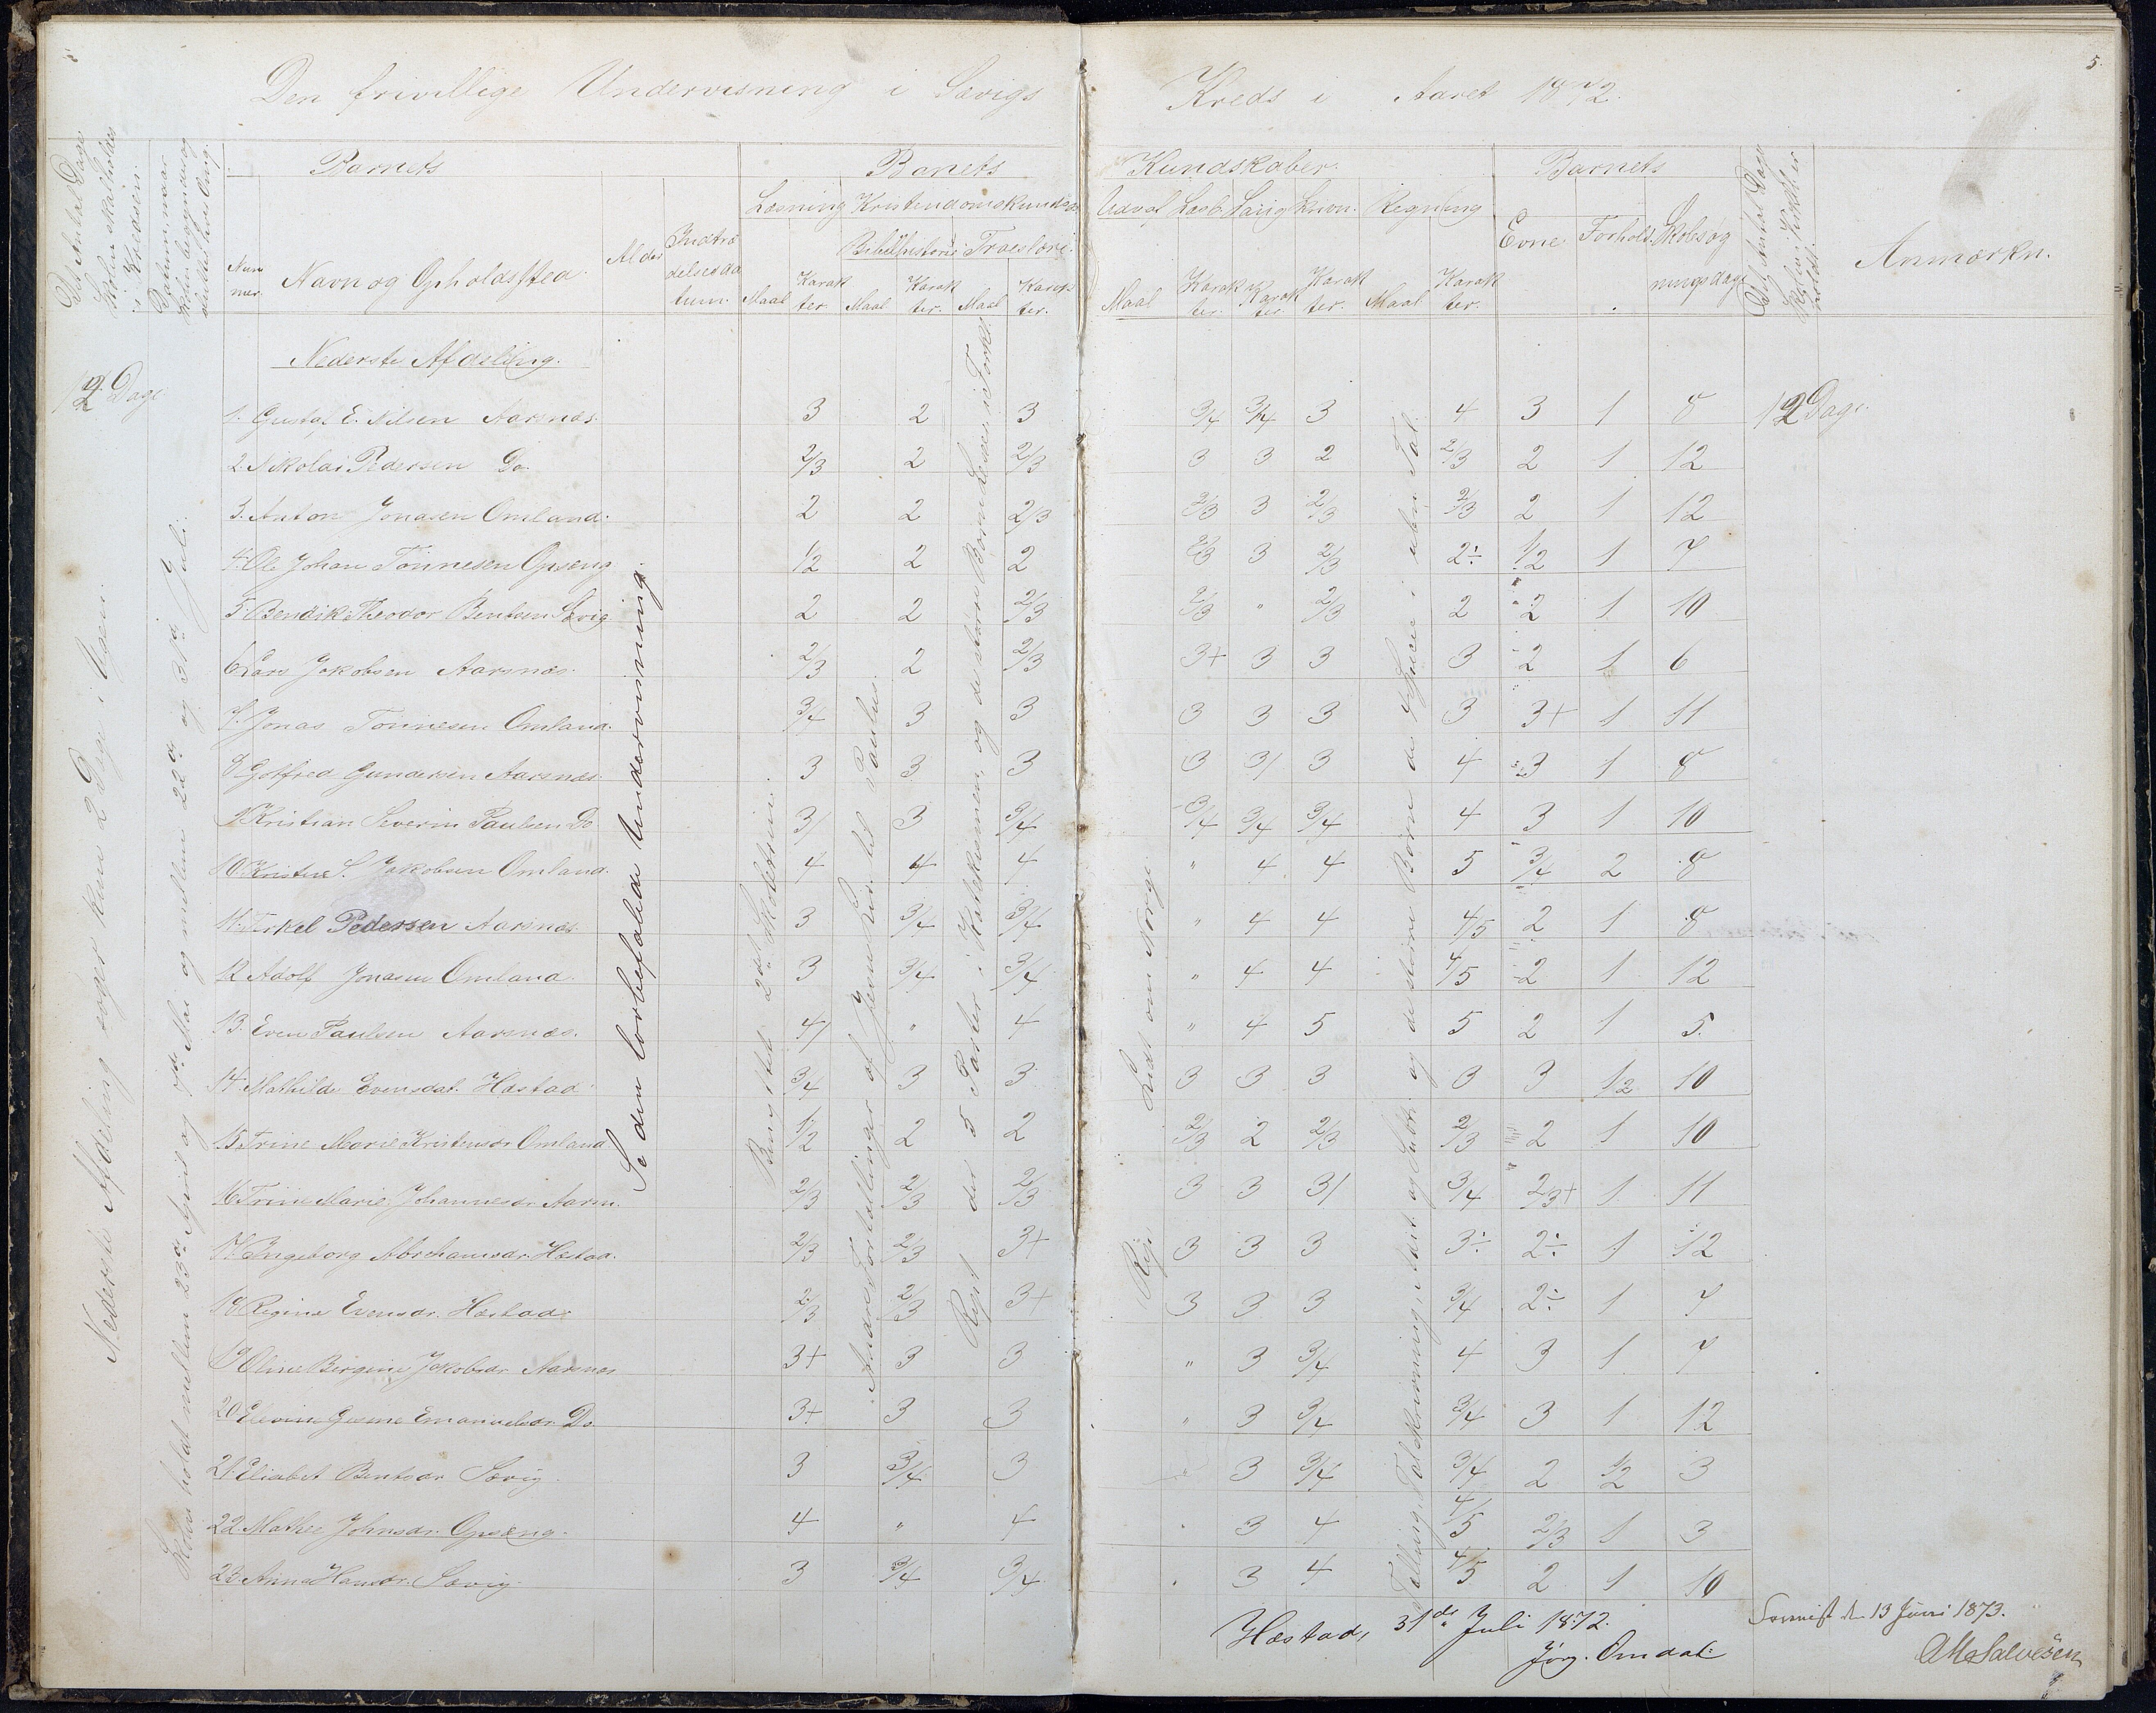 5.
Den frivillige Undervisning i Sævigs Kreds i Aaret 1872.
Det Antal Dage Skolen skal holdes i Kredsen.
Datum naar Skolen begynder og slutter hver Omg.
Barnets
Barnets Kundskaber.
Barnets
Det Antal Dage Skolen i Virkh. er holdt.
Anmærkn.
Læsning Kristendomskundsk. Udv. af Læseb. Sang Skrivn. Regning
Bibelhistorie Troeslære.
Num mer. Navn og Opholdssted. Alder Indtræ delsesda tum. Maal Karak ter. Maal Karak ter. Maal Karak ter. Maal Karak ter. Karak ter. Karak ter. Maal Karak ter. Evne Forhold. Skolesøg ningsdage
Nederste Afdeling.
12 Dage
1. Gustaf E. Nilsen Aarsnæs. 3 2 3 3/4 3/4 3 4 3 1 8 12 Dage.
2. Nikolai Pedersen Do. 2/3 2 2/3 3 3 2 2/3 2 1 12
3. Anton Jonasen Omland. 2 2 2/3 2/3 3 2/3 2/3 2 1 12
4. Ole Johan Tønnesen Opsæng 1/2 2 2 2/3 3 2/3 2÷ 1/2 1 7
5. Bendik Theodor Bentsen Sævig 2 2 2/3 2/3 " 2/3 2 2 1 10
6 Lars Jakobsen Aarsnæs. 2/3 2 2/3 3+ 3 3 3 2 1 6
7. Jonas Tønnesen Omland. 3/4 3 3 3 3 3 3 3+ 1 11
8 Gotfred Gundersen Aarsnæs. 3 3 3 3 3/ 3 4 3 1 8
9 Kristian Severin Paulsen Do 3/ 3 3/4 3/4 3/4 3/4 4 3 1 10
10 Kristine S. Jakobsen Omland. 4 4 4 " 4 4 5 3/4 2 8
11. Terkel Pedersen Aarsnæs. 3 3/4 3/4 " 4 4 4/5 2 1 8
12 Adolf Jonasen Omland. 3 3/4 3/4 " 4 4 4/5 2 1 12
13. Even Paulsen Aarsnæs. 4/ " 4 " 4 5 5 2 1 5.
14. Mathilde Evensdat. Hæstad 3/4 3 3 3 3 3 3 3 1/2 10
15 Trine Marie Kristensdr. Omland 1/2 2 2 2/3 2 2/3 2/3 2 1 10
16 Trine Marie Johannesdr. Aarsn. 2/3 2/3 2/3 3 3 3/ 3/4 2/3+ 1 11
17 Ingeborg Abrahamsdr. Hæstad. 2/3 2/3 3+ 3 3 3 3÷ 2÷ 1 12
18 Regine Evensdr. Hæstad. 2/3 2/3 3+ 3 3 3 3/4 2÷ 1 7
19 Oline Bergine Jakobsdr. Aarsnæs 3+ 3 3 " 3 3/4 4 3 1 7
20 Elevine Gurine Emanuelsdr. Do. 3+ 3 3 " 3 3/4 3/4 3 1 12
21. Elisabet Bentsdr. Sævig. 3 3/4 3 3 3/4 3/4 2 1/2 3
22. Mathee Johnsdr. Opsæng. 4 " 4 3 4 4/5 2/3 1 3
23. Anna Hansdr. Sævig. 3 3/4 3/4 3 4 4/5 2 1 10
Nederste Afdeling søger kun 2 Dage i Ugen.
Skolen holdt mellem 23de April og 7de Mai og mellem 22de og 31te Juli.
Se den lovbefalede Undervisning.
Benyttet 2det Skoletrin.
Andre Fortællinger af Jesu Liv til Paulus.
Rept. der 5 Parter i Katekismen, og de større Børn Læses i Forkl.
Rep. Lidt om Norge.
Tælling, Talskrivning, Addit. og Subtr. og de større Børn de 4 Species i uben. Tal.
Hæstad, 31te Juli 1872.
Jörg. Omdal.
Fremvist den 13 Juni 1873.
Salvesen